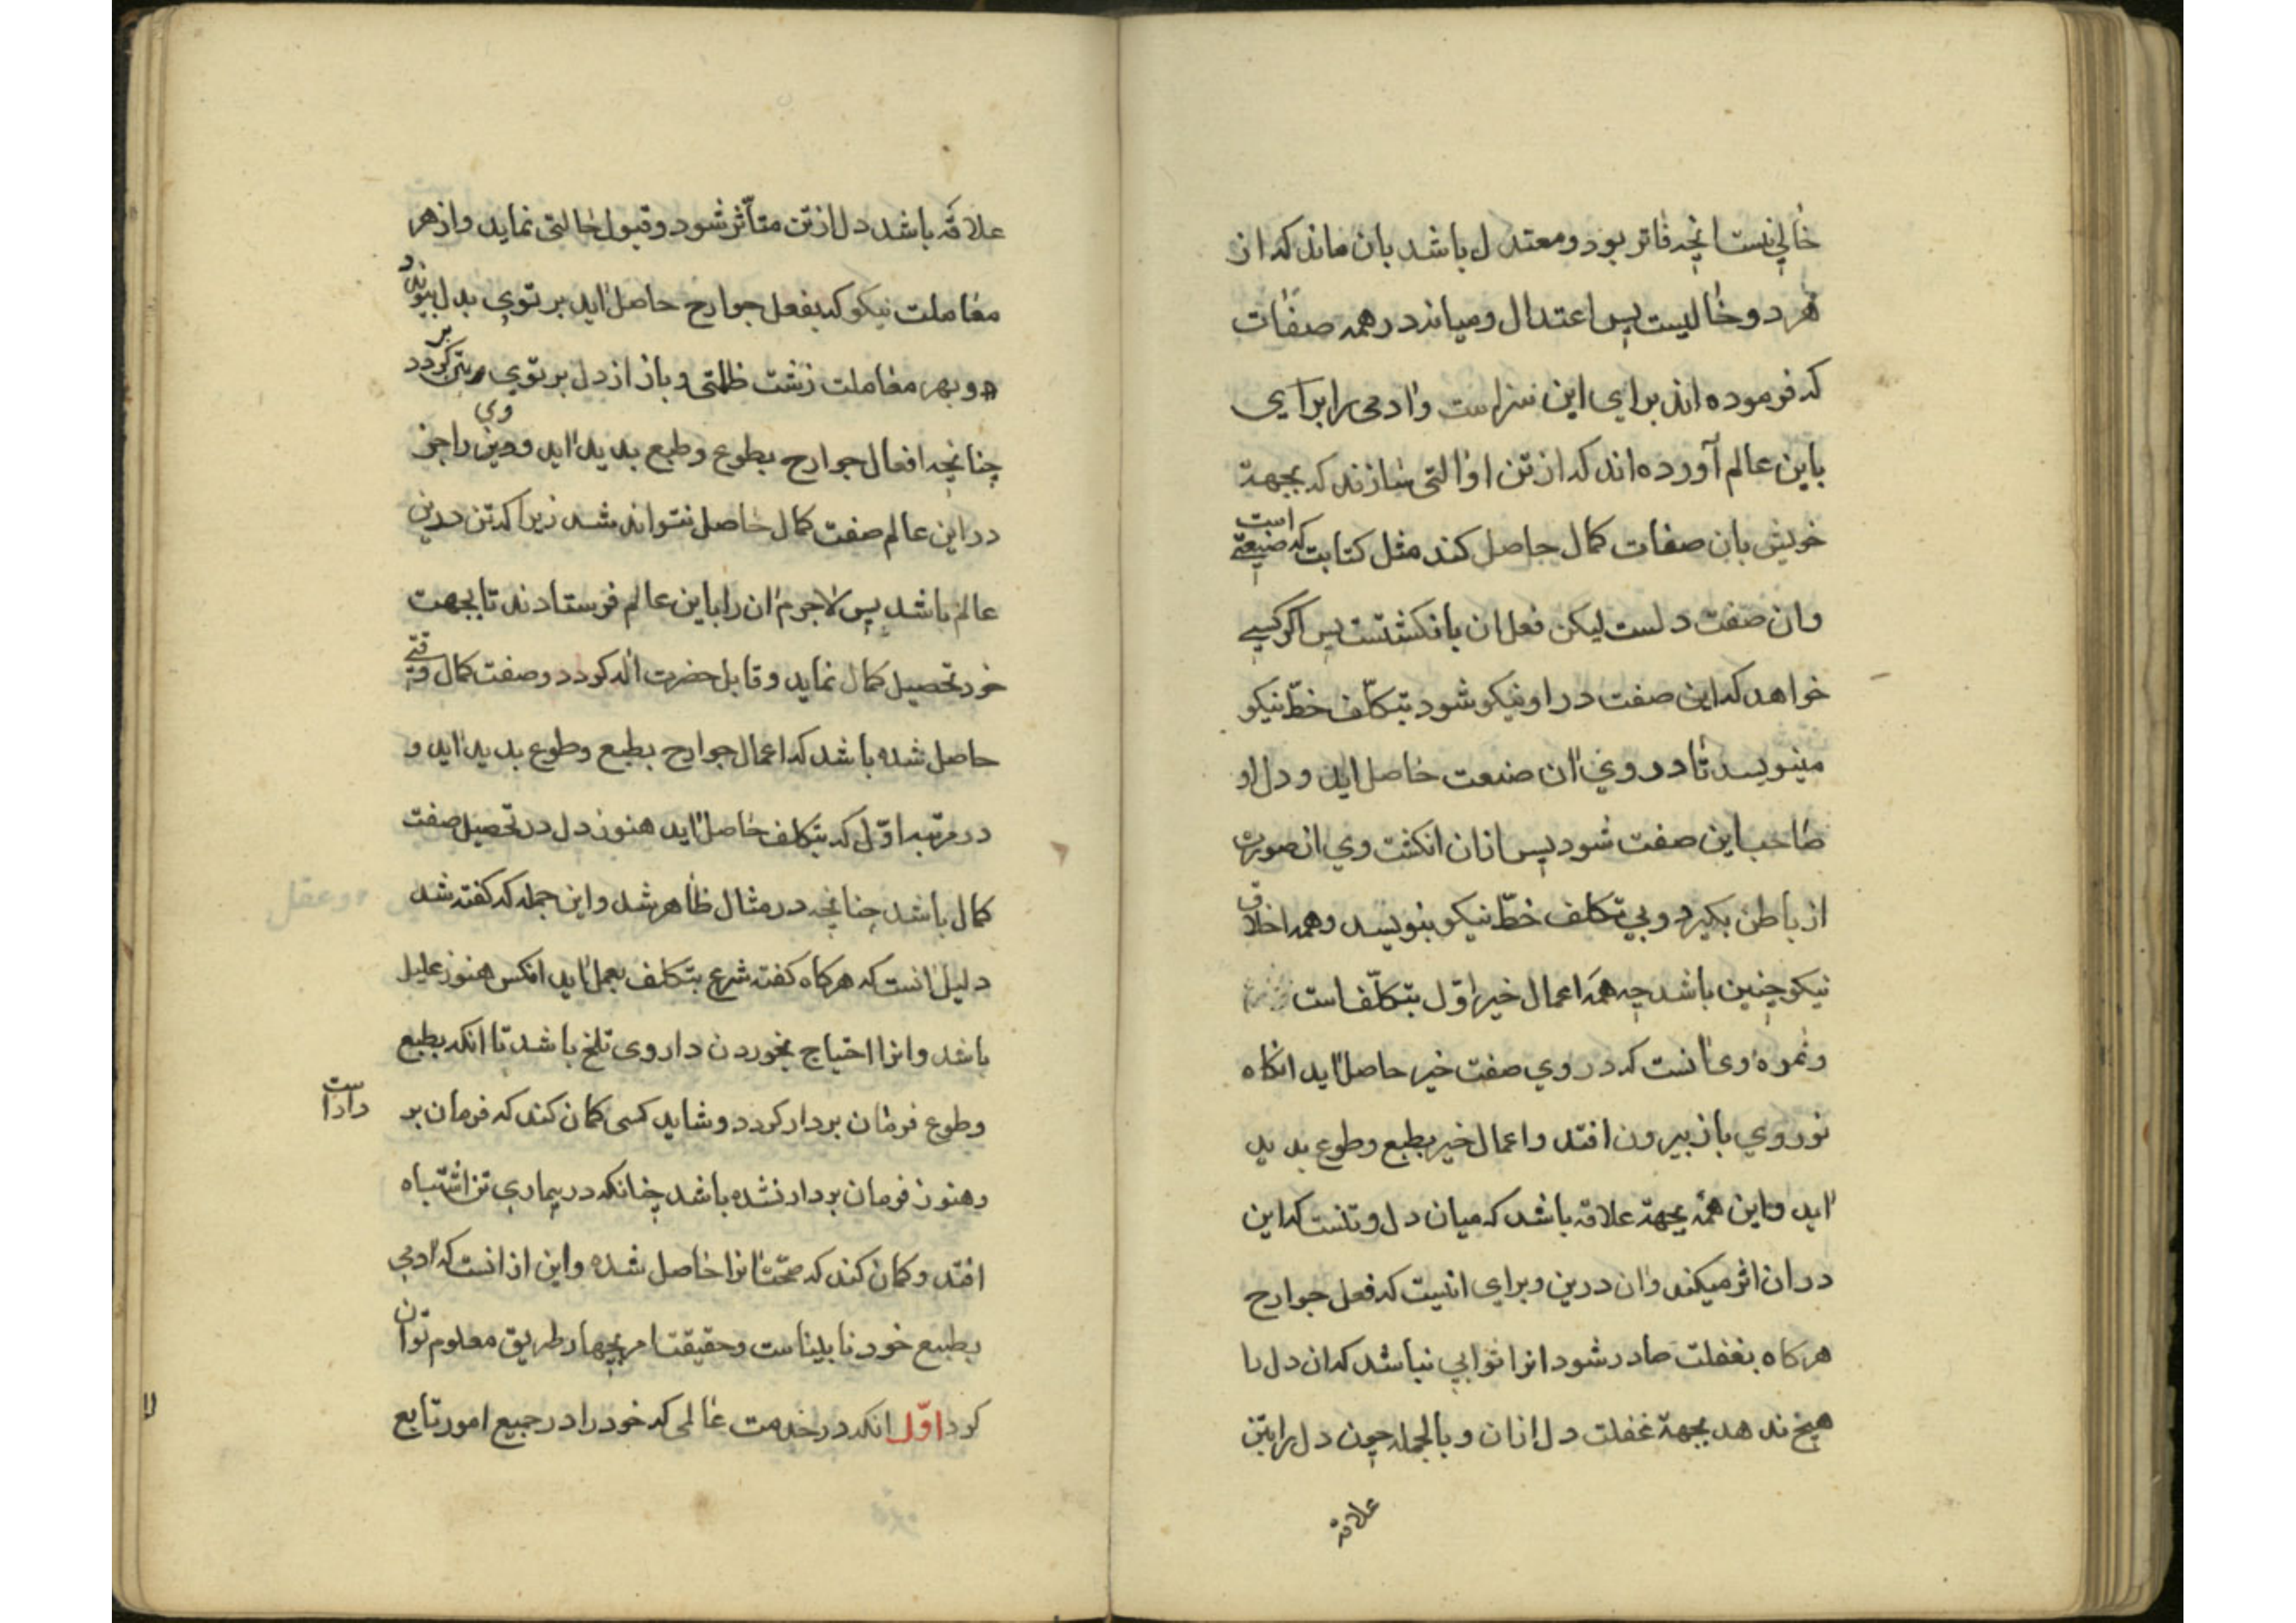 خالی نیست انچه فاتر بود ومعتدل باشد بان ماند که از
هر دو خالیست پس اعتدال ومیانه در همه صفات
که فرموده اند برای این سراست وادمی را برای
باین عالم آورده اند که از تن او التی سازند که بجهة
خویش بان صفات کمال حاصل کند مثل کتابت که صنعتی است
وان صفت دلست لیکن فعل ان بانکشتست پس اکر کسی
خواهد که این صفت در او نیکو شود بتکلّف خطّ نیکو
مینویسد تا در وی ان صنعت حاصل اید و دل او
صاحب این صفت شود پس ازان انکشت وی ان صورة
از باطن بکیرد وبی تکلف خطّ نیکو بنویسد وهمه اخلاق
نیکو چنین باشد چه همه اعمال خیر اوّل بتکلّف است
وثمره وی انست که در وی صفت خیر حاصل اید انکاه
نور وی باز بیرون افتد واعمال خیر بطبع وطوع بدید
اید واین همه بجهة علاقه باشد که میان دل وتنست که این
در ان اثر میکند وان درین وبرای اینست که فعل جوارح
هرکاه بغفلت صادر شود انرا ثوابی نباشد که ان دل را
هیچ ندهد بجهة غفلت دل ازان وبالجمله چون دل را بتن
علاقه
علاقه باشد دل از تن متأثر شود وقبول حالتی نماید واز هر
معاملت نیکو که بفعل جوارح حاصل اید برتوی بدل بیوندد
وبهر معاملت زشت ظلمتی وباز از دل برتوی بر تن کردد
چنانچه افعال جوارح بطوع وطبع بدید اید و وی را جز
در این عالم صفت کمال حاصل نتواند شد زیرا که تن درین
عالم باشد پس لاجرم ان را باین عالم فرستادند تا بجهت
خود تحصیل کمال نماید وقابل حضرت اله کردد وصفت کمال وقتی
حاصل شده باشد که اعمال جوارح بطبع وطوع بدید اید و
در مرتبه اوّل که بتکلف حاصل اید هنوز دل در تحصیل صفت
کمال باشد چنانچه در مثال ظاهر شد واین جمله که کفته شد
دلیل انست که هرکاه کفته شرع بتکلف بعمل اید انکس هنوز علیل
باشد وانرا احتیاج بخوردن داروی تلخ باشد تا انکه بطبع
وطوع فرمان بردار کردد وشاید کسی کمان کند که فرمان بر
دار است
وهنوز فرمان بردار نشده باشد چنانکه در بیماری تن اشتباه
افتد وکمان کند که صحّت انرا حاصل شده واین از انست که ادمی
بطبع خود نابیناست وحقیقت امر بچهار طریق معلوم توان
کرد اوّل انکه در خدمت عالمی که خود را در جمیع امور تابع